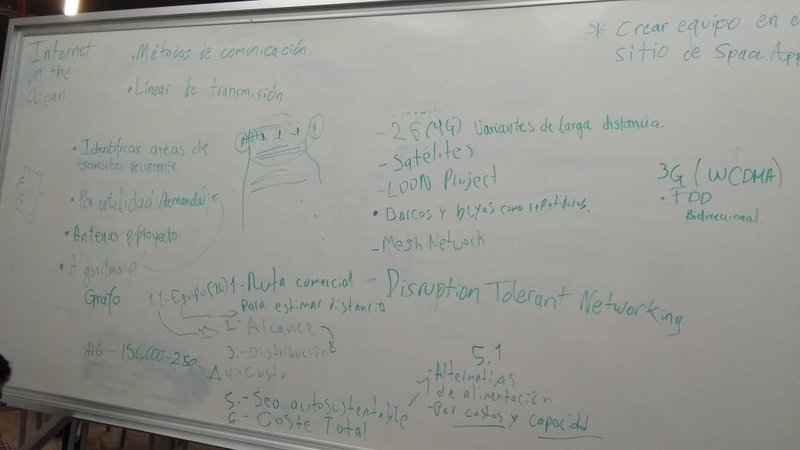 Internet
on the
Ocean
• Métodos de comunicación
• Líneas de transmisión
* Crear equipo en e
sitio de Space App
• Identificar areas de
transito recurrente
• Por utilidad (demanda)
• Antenas p/proyecto
• Algoritmo p
Grafo
- 2G (4G) Variantes de larga distancia
- Satélites
- LOON Project
• Barcos y buyas como repetidores.
- Mesh Network
- Disruption Tolerant Networking
3G (WCDMA)
• TDD
Bidireccional
1.1- Equipo (2G)
1.- Ruta comercial
para estimar distancia
2.- Alcance
3.- Distribución
4.- Costo
AVG - 150,000-250
5.- Sea autosustentable
6.- Coste Total
5.1
- Alternativas
de alimentación
- Por costos y capacidad